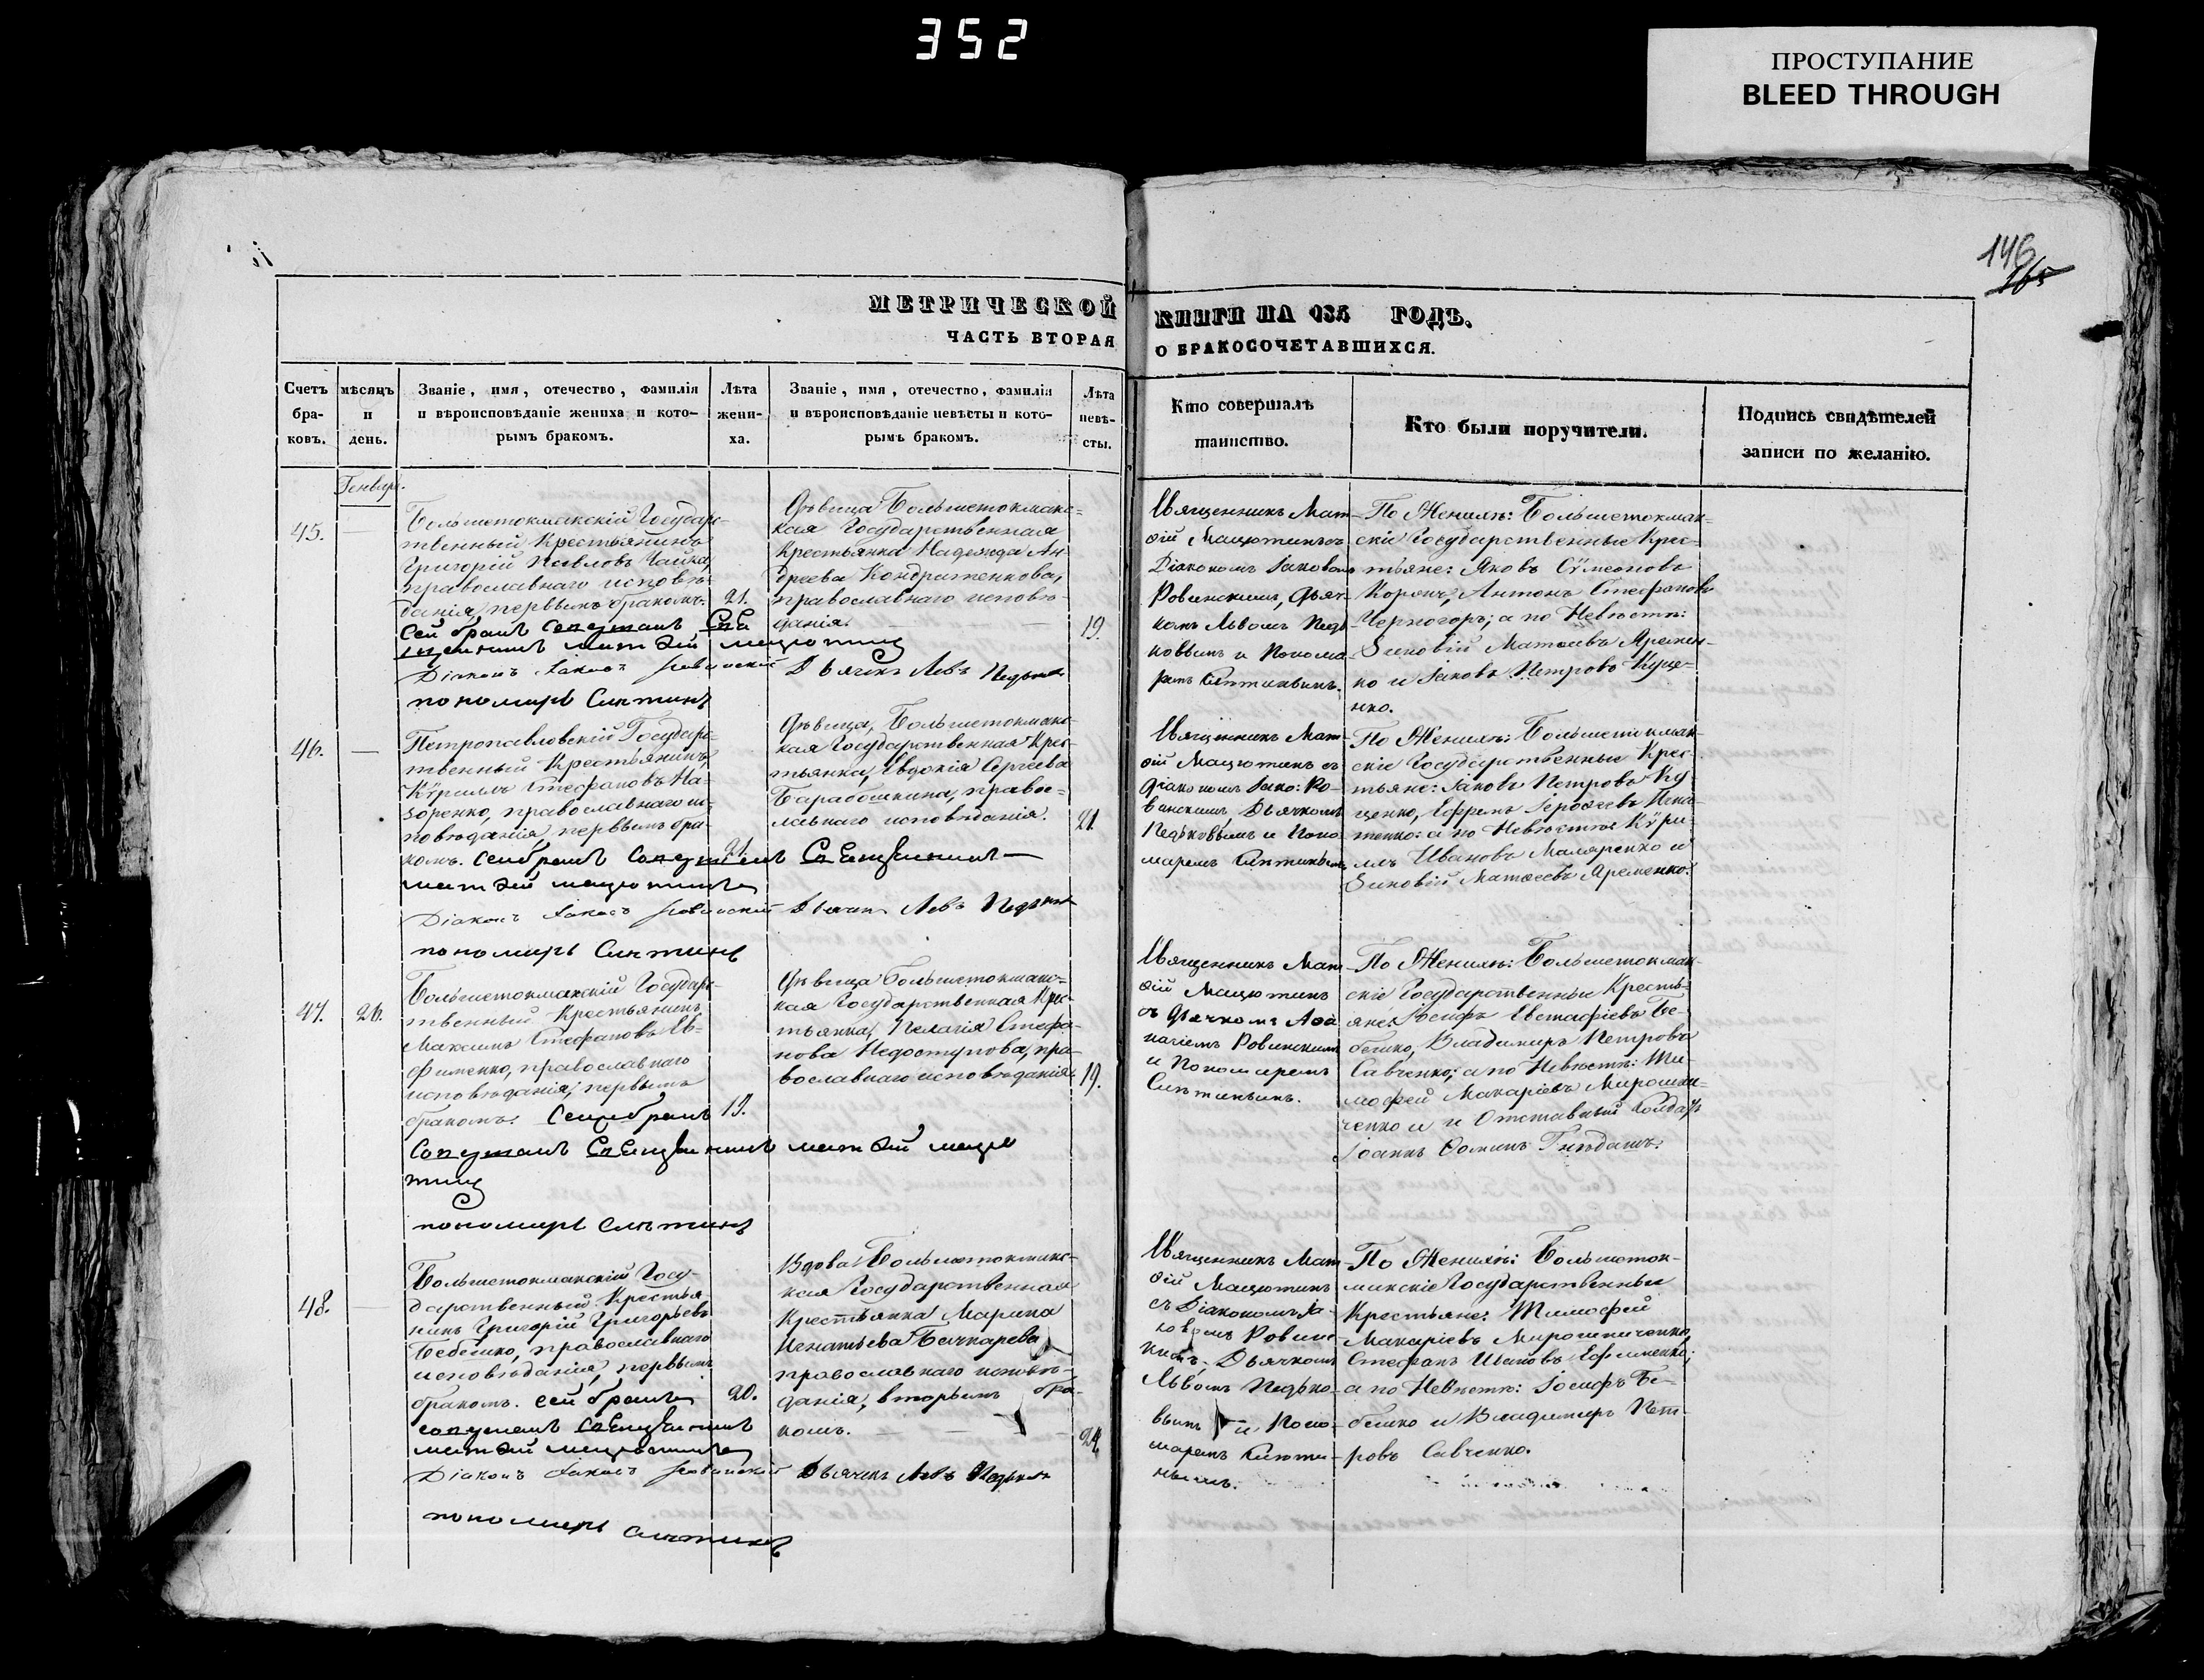 352
ПРОСТУПАНИЕ
BLEED THROUGH
146
165
МЕТРИЧЕСКОЙ
ЧАСТЬ ВТОРАЯ
КНИГИ НА 185 ГОДЪ.
О БРАКОСОЧЕТАВШИХСЯ.
Счетъ бра- ковъ.
мѣсяцъ и день.
Званіе, имя, отечество, фамилія
и вѣроисповѣданіе жениха и кото-
рымъ бракомъ.
Лѣта жени- ха.
Званіе, имя, отечество, фамилія
и вѣроисповѣданіе невѣсты и кото-
рымъ бракомъ.
Лѣта невѣ- сты.
Кто совершалъ
таинство.
Кто были поручители.
Подпись свидѣтелей
записи по желанію.
Генварь.
45.
Большетокмакскій Государс-
твенный Крестьянинъ
Григорій Павловъ Чайка,
православнаго исповѣ-
данія, первымъ бракомъ.
21.
Сей бракъ
Діаконъ Іаковъ Ровинскій
пономарь
Дѣвица Большетокмакс-
кая Государственная
Крестьянка Надежда Ан-
дреева Кондратенкова,
православнаго исповѣ-
данія.
19.
Дьячекъ Левъ Педьковъ
Священникъ Мат-
ѳій Мацютинъ съ
Діакономъ Іаковомъ
Ровинскимъ, Дьяч-
комъ Львомъ Педь-
ковымъ и Понома-
ремъ
По Женихѣ: Большетокмак-
скіе Государственные Крес-
тьяне: Яковъ Сѵмеоновъ
Антонъ Стефановъ
Черногоръ; а по Невѣстѣ:
Зиновій Матѳеевъ Яремен-
ко и Іаковъ Петровъ Куце-
нко.
46.
Петропавловскій Государс-
твенный Крестьянинъ,
Кѵриллъ Стефановъ На-
зоренко, православнаго ис-
повѣданія, первымъ бра-
комъ.
21.
Діаконъ Іаковъ Ровинскій
пономарь
Дѣвица, Большетокмакс-
кая Государственная Крес-
тьянка, Евдокія Сергѣева
Барабошкина, правос-
лавнаго исповѣданія.
21.
Дьячекъ Левъ Педьковъ
Священникъ Мат-
ѳій Мацютинъ съ
Діакономъ Іако: Ро-
винскимъ Дьячкомъ
Педьковымъ и Поно-
маремъ
По Женихѣ: Большетокмак-
скіе Государственные Крес-
тьяне: Іаковъ Петровъ Ку-
ценко, Ефремъ
а по Невѣстѣ: Кѵри-
ллъ Ивановъ Маляренко и
Зиновій Матѳеевъ Яременко.
47.
26.
Большетокмакскій Государс-
твенный Крестьянинъ
Максимъ Стефановъ Еѳ-
фименко, православнаго
исповѣданія, первымъ
бракомъ.
19.
пономарь
Дѣвица Большетокмакс-
кая Государственная Крес-
тьянка, Пелагія Стефа-
нова Недоступова, пра-
вославнаго исповѣданія.
19.
Священникъ Мат-
ѳій Мацютинъ
съ Дьячкомъ Аѳа-
насіемъ Ровинскимъ
и Пономаремъ
По Женихѣ: Большетокмак-
скіе Государственные Кресть-
яне: Іосифъ Евстафіевъ Бе-
бешко, Владимиръ Петровъ
Савченко; а по Невѣстѣ: Ти-
мофей Макаріевъ Мирошни-
ченко и и Отставный Солдатъ
Іоаннъ Ѳоминъ Гнѣдашъ.
48.
Большетокмакскій Госу-
дарственный Крестья-
нинъ Григорій Григорьевъ
Бебешко, православнаго
исповѣданія, первымъ
бракомъ. Сей бракъ
20.
Діаконъ Іаковъ Ровинскій
пономарь
Вдова Большетокмакс-
кая Государственная
Крестьянка Марина
Игнатьева Бочкарева
православнаго исповѣ-
данія, вторымъ бра-
комъ.
24.
Дьячекъ Левъ Педьковъ
Священникъ Мат-
ѳій Мацютинъ
съ Діакономъ Іа-
ковомъ Ровинс-
кимъ, Дьячкомъ
Львомъ Педько-
вымъ и Поно-
маремъ
По Женихѣ: Большеток-
макскіе Государственные
Крестьяне: Тимофей
Макаріевъ Мирошниченко,
Стефанъ Ивановъ Ефименко;
а по Невѣстѣ: Іосифъ Бе-
бешко и Владимиръ Пет-
ровъ Савченко.